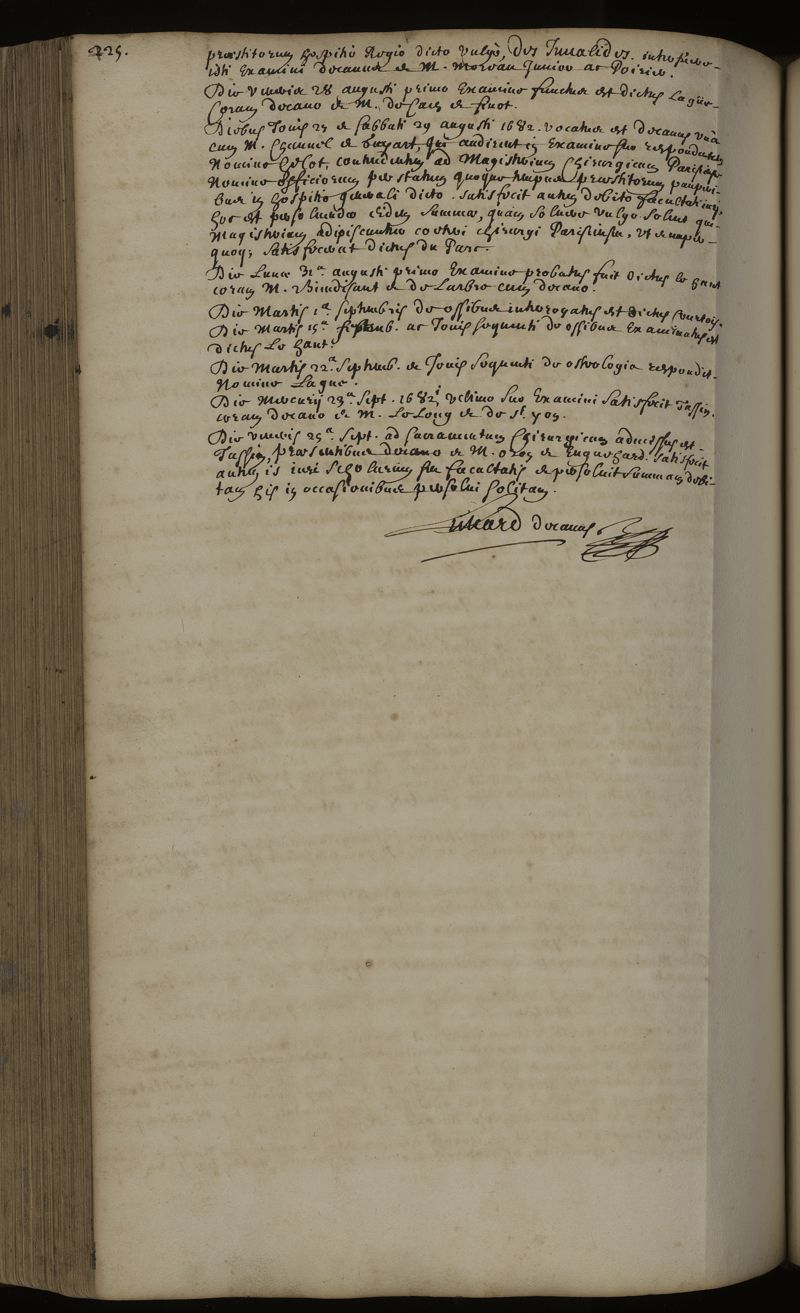 225.
præstitorum hospitio Regio dicto vulgò, Des Inualides. interfuere
isti Examini decanus & M. Moreau Junior ac Poirier.
Die veneris 28 augusti primo Examine functus est dictus Lague
Coram decano & M. de Caen & finot.
Diebus Jouis 27 & sabbati 29 augusti 1682. vocatus est decanus unà
cum M. & qui audirent in Examine suo respondentem
Nomine Colot, contendentem ad Magisterium Chirurgicum
Nomine officiorum per statum quoque tempus præstitorum pauperi-
bus in hospitio generali dicto. satisfecit autem debito facultati
hoc est persoluendo eidem summam, quam soluere vulgo solent qui
Magisterium adipiscuntur coetui chirurgi Parisiensis, vt
quoque satisfecerat dictus du Parc.
Die Lunæ 31a. augusti primo Examine probatus fuit dictus le Gant
coram M. & de Larbre cum decano.
Die Martis 1a. septembris de ossibus interrogatus est dictus
Die Martis 15a. septemb. ac Jouis sequenti de ossibus Examinatus est
dictus Le Gant.
Die Martis 22a. septemb. & Jouis sequenti de osteologia respondit
Nomine Lague.
Die Mercurij 23a. sept. 1682, vltimo suo Examini satisfecit Tassin,
coram decano & M. LeLong & de St. yon.
Die veneris 25a. sept. ad sacramentum Chirurgicum admissus est
Tassin, præsentibus decano & M. & Enguehard. satisfecit
autem is iuri scholarum seu facultatis & persoluit summam debi-
tam his in occasionibus persolui solitam.
Lienard decanus.